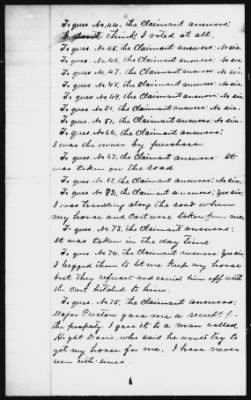 To ques. No. 44, the Claimant answers;
I don't think I voted at all.
To ques. No. 45, the Claimant answers: No sir.
To ques. No. 46, the Claimant answers: No sir.
To ques. No. 47, the Claimant answers: No sir.
To ques. No. 48, the Claimant answers: No sir.
To ques. No. 49, the Claimant answers: No sir.
To ques. No. 50, the Claimant answers: No sir.
To ques. No. 51, the Claimant answers: No sir.
To ques. No. 66, the Claimant answers;
I was the owner by purchase.
To ques. No. 67, the Claimant answers: It
was taken on the road
To ques. No. 68, the Claimant answers; No sir.
To ques. No. 72, the Claimant answers; Yes sir,
I was travelling along the road when
my horse and Cart were taken from me.
To ques. No. 73, the Claimant answers:
It was taken in the day time
To ques. No. 74, the Claimant answers: Yes sir,
I begged them to let me keep my horse
but they refused and carried him off with
the cart hitched to him.
To ques. No. 75, the Claimant answers;
Major Preston gave me a receipt for
the property. I gave it to a man called
Hight Davis, who said he would try to
get my horse for me. I have never
seen since